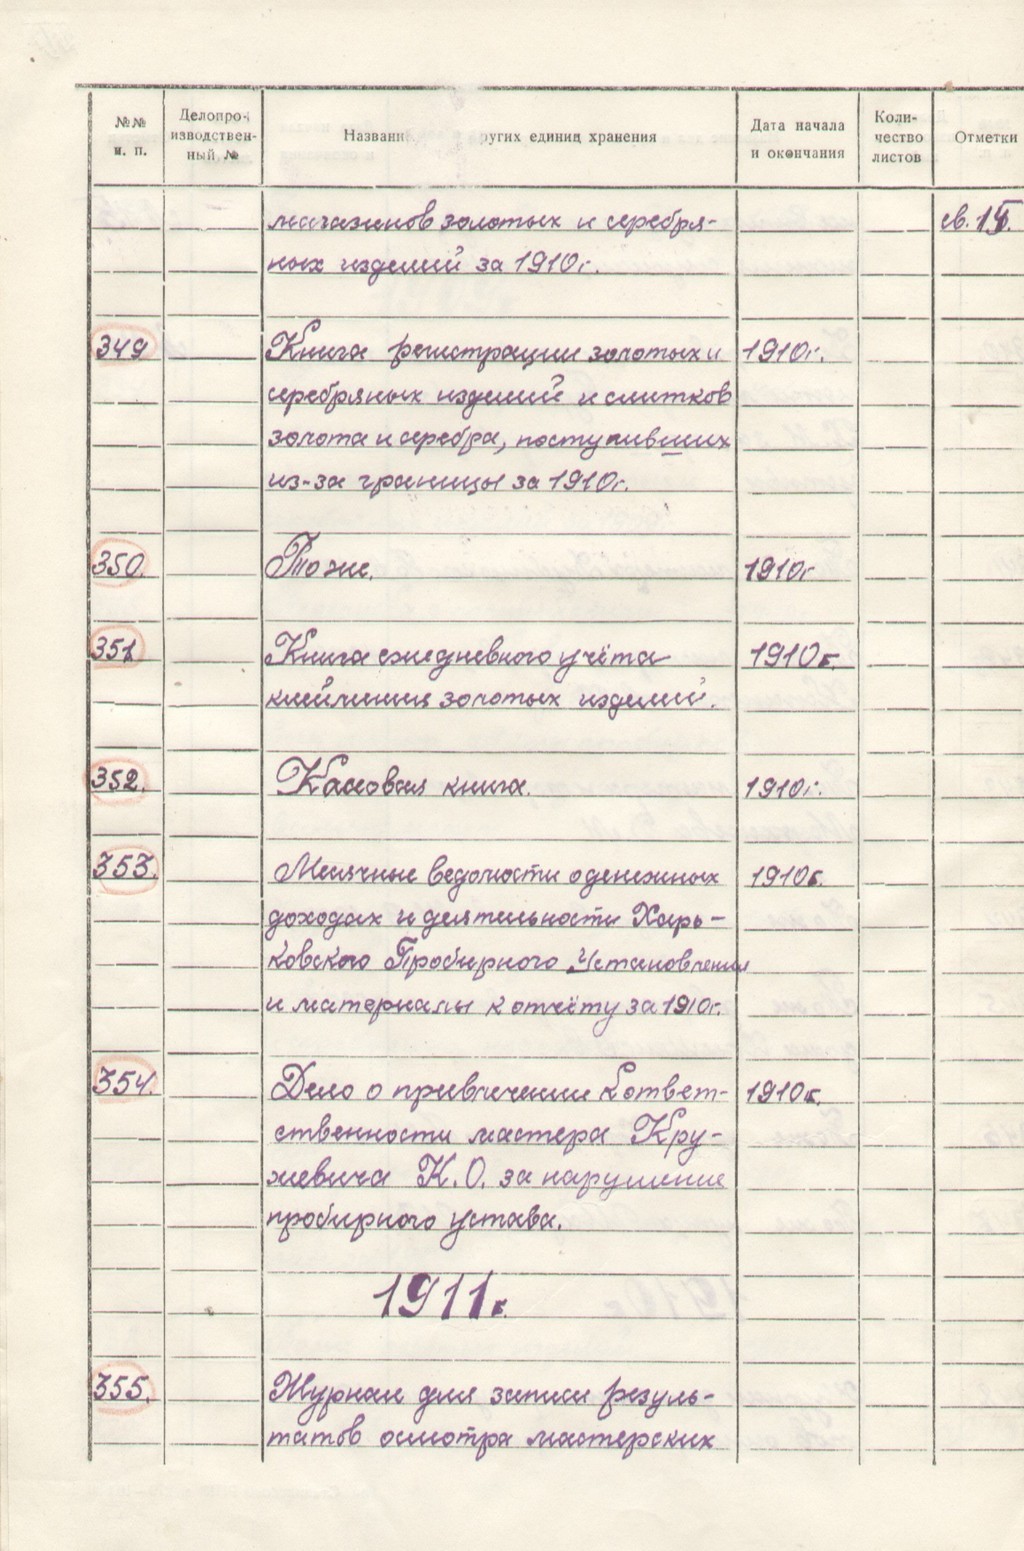 №№
п. п.
Делопро-
изводствен-
ный №
Названи ругих единиц хранения
Дата начала
и окончания
Коли-
чество
листов
Отметки
магазинов золотых и серебря-
ных изделий за 1910г.
349 Книга регистрации золотых и 1910г.
серебряных изделий и слитков
золота и серебра, поступивших
из-за границы за 1910г.
350. То же. 1910г
351. Книга ежедневного учёта 1910г.
клеймения золотых изделий.
352. Кассовая книга. 1910г.
353. Месячные ведомости о денежных 1910г.
доходах и деятельности Харь-
ковского Пробирного Установления
и материалы к отчёту за 1910г.
354. Дело о привлечении к ответ- 1910г.
ственности мастера Кру-
жевича К.О. за нарушение
пробирного устава.
1911г.
355. Журнал для записи резуль-
татов осмотра мастерских